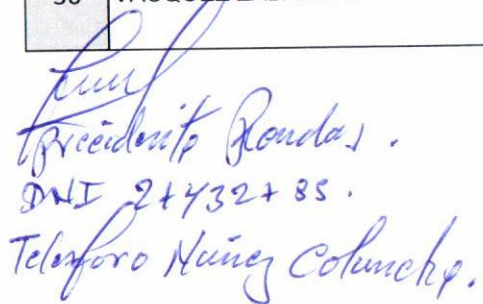 Presidente Rondas.
DNI 27432785.
Telesforo Núñez Colunche.